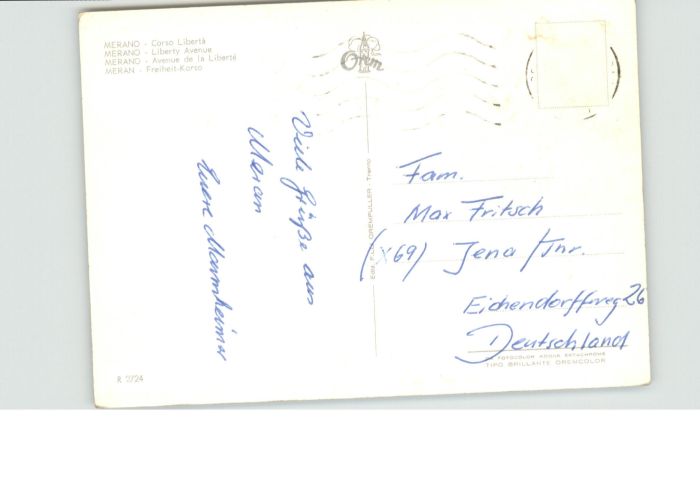 MERANO - Corso Libertà
MERANO - Liberty Avenue
MERANO - Avenue de la Liberté
MERAN - Freiheit-Korso
Viele Grüße aus
Meran
Eure Mannheimer
Edit. F.LLI OREMPULLER - Trento
Fam.
Max Fritsch
(X69) Jena/Thr.
Eichendorffweg 26
Deutschland
FOTOCOLOR KODAK EKTACHROME
TIPO BRILLANTE OREMCOLOR
R 2/24